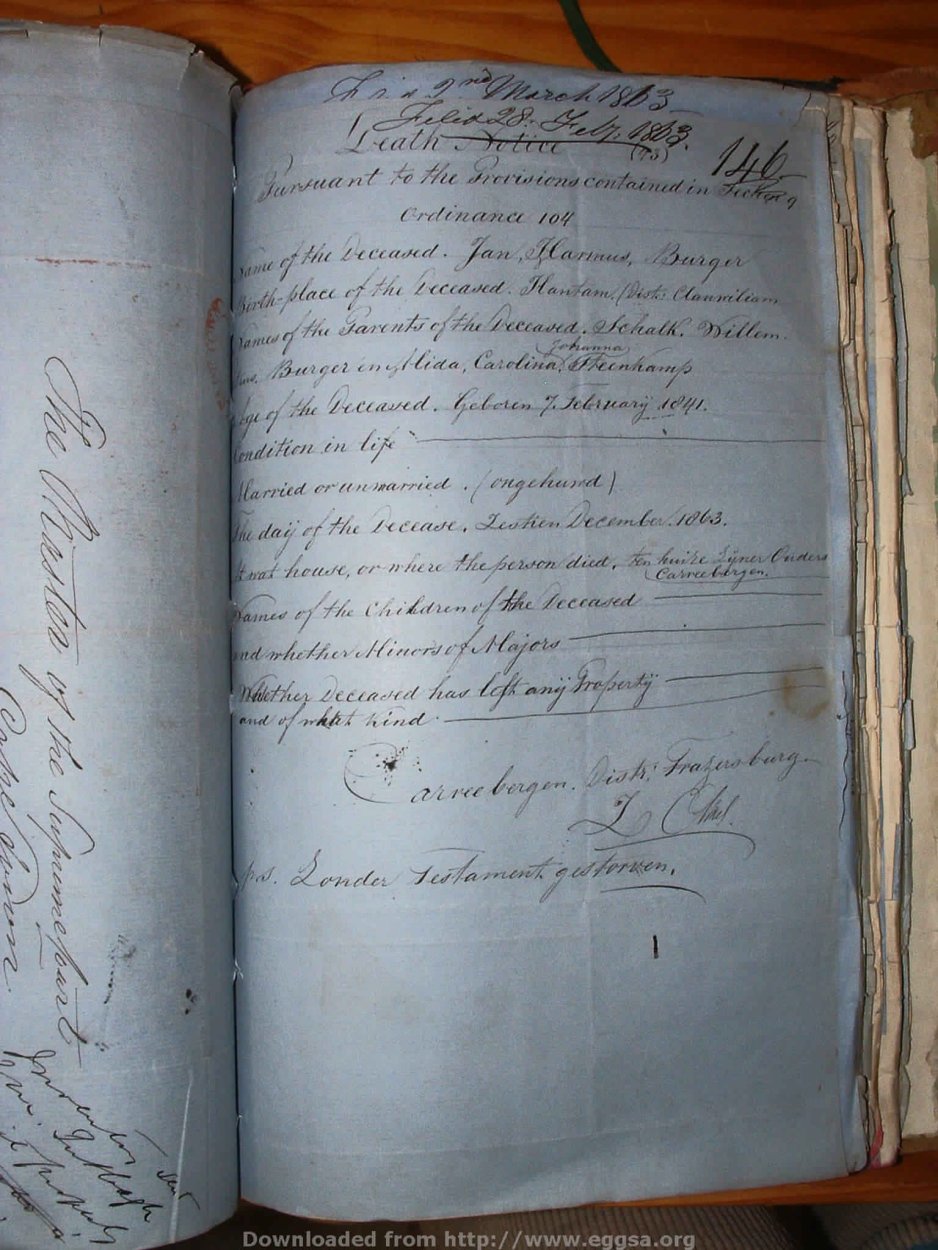 The Master of the Supreme Court
2nd March 1863
Felix 28 Feb: 1863.
Death Notice
(73)
146
Pursuant to the Provisions contained in Section 9
Ordinance 104
Name of the Deceased. Jan, Harmus, Burger
Birth-place of the Deceased. Hantam, (Distr: Clanwiliam
Names of the Parents of the Deceased. Schalk, Willem.
Burger en Alida, Carolina, Johanna, Steenkamp
Age of the Deceased. Geboren 7. Februarij 1841.
Condition in life
Married or unmarried. (ongehuwd)
The day of the Decease. December. 1863.
At wat house, or where the person died, ten huize Zijner Ouders
Carreebergen.
Names of the Children of the Deceased
and whether Minors of Majors
Whether Deceased has left any Property
and of what kind.
Carreebergen. Distr: Frazersburg.
p.s. Zonder Testament gestorven.
Downloaded from http://www.eggsa.org